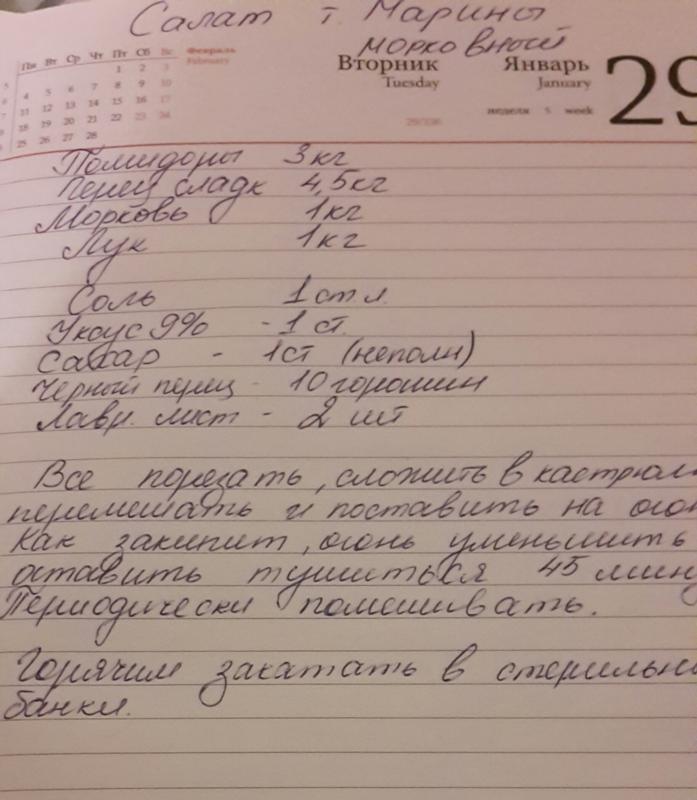 Салат т. Марины
морковный
Пн Вт Ср Чт Пт Сб Вс
1 2 3
4 5 6 7 8 9 10
11 12 13 14 15 16 17
18 19 20 21 22 23 24
25 26 27 28
Февраль
February
Вторник
Tuesday
Январь
January
неделя 5 week
29/336
29
Помидоры 3 кг
Перец сладк 4,5 кг
Морковь 1 кг
Лук 1 кг
Соль 1 ст.л.
Уксус 9% - 1 ст.
Сахар - 1 ст (неполн)
Черный перец - 10 горошин
Лавр. лист - 2 шт
Все порезать, сложить в кастрюл
перемешать и поставить на огон
Как закипит, огонь уменьшить
оставить тушиться 45 мин
Периодически помешивать.
Горячим закатать в стерильн
банки.